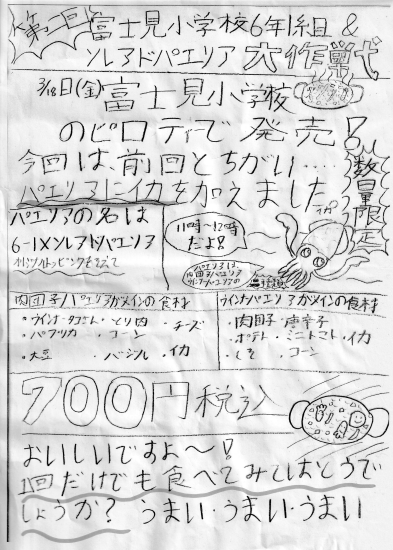 第二回
富士見小学校6年1組&
ソレアドパエリア 大作戦
3/18日(金)富士見小学校
のピロティーで発売!
今回は、前回とちがい‥‥
パエリアにイカを加えました
数量限定
イカ
パエリアの名は
6-1×ソレアドパエリア
11時〜12時
だよ!!
パエリアは
肉団子パエリア
ウインナーパエリアの
2種類
肉団子パエリアがメインの食材
・ウインナー ・とり肉 ・チーズ
・パプリカ ・コーン
・大豆 ・バジル ・イカ
ウインナパエリアがメインの食材
・肉団子 ・唐辛子
・ポテト ・ミニトマト ・イカ
・コーン
700円税込
おいしいですよ〜!
1回だけでも食べてみてはどうで
しょうか? うまい・うまい・うまい